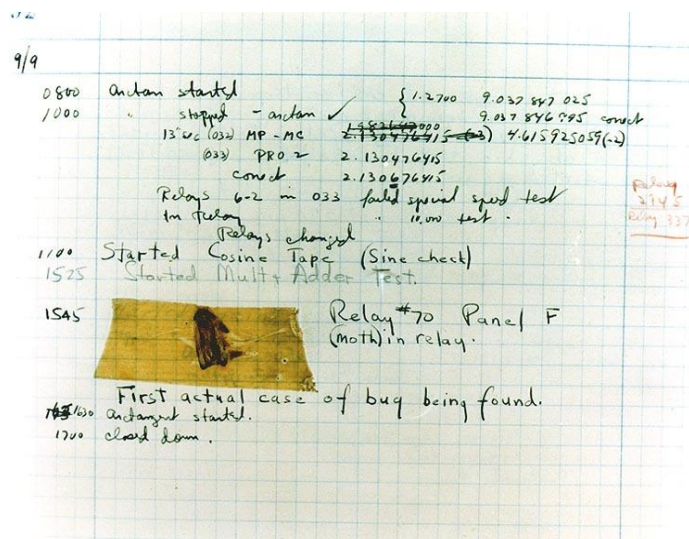 9/9
0800 antan started
1000 " stopped - antan ✓ { 1.2700 9.037 847 025
9.037 846 995 conect
13"uc (032) MP - MC 2.130476415 (-3) 4.615925059(-2)
(033) PRO 2 2.130476415
conect 2.130676415
Relays 6-2 in 033 failed special speed test
in relay " 10.000 test .
Relays changed
Relay
3370
1100 Started Cosine Tape (Sine check)
1525 Started Mult+Adder Test.
1545 Relay #70 Panel F
(moth) in relay.
First actual case of bug being found.
1630 antangent started.
1700 closed down.